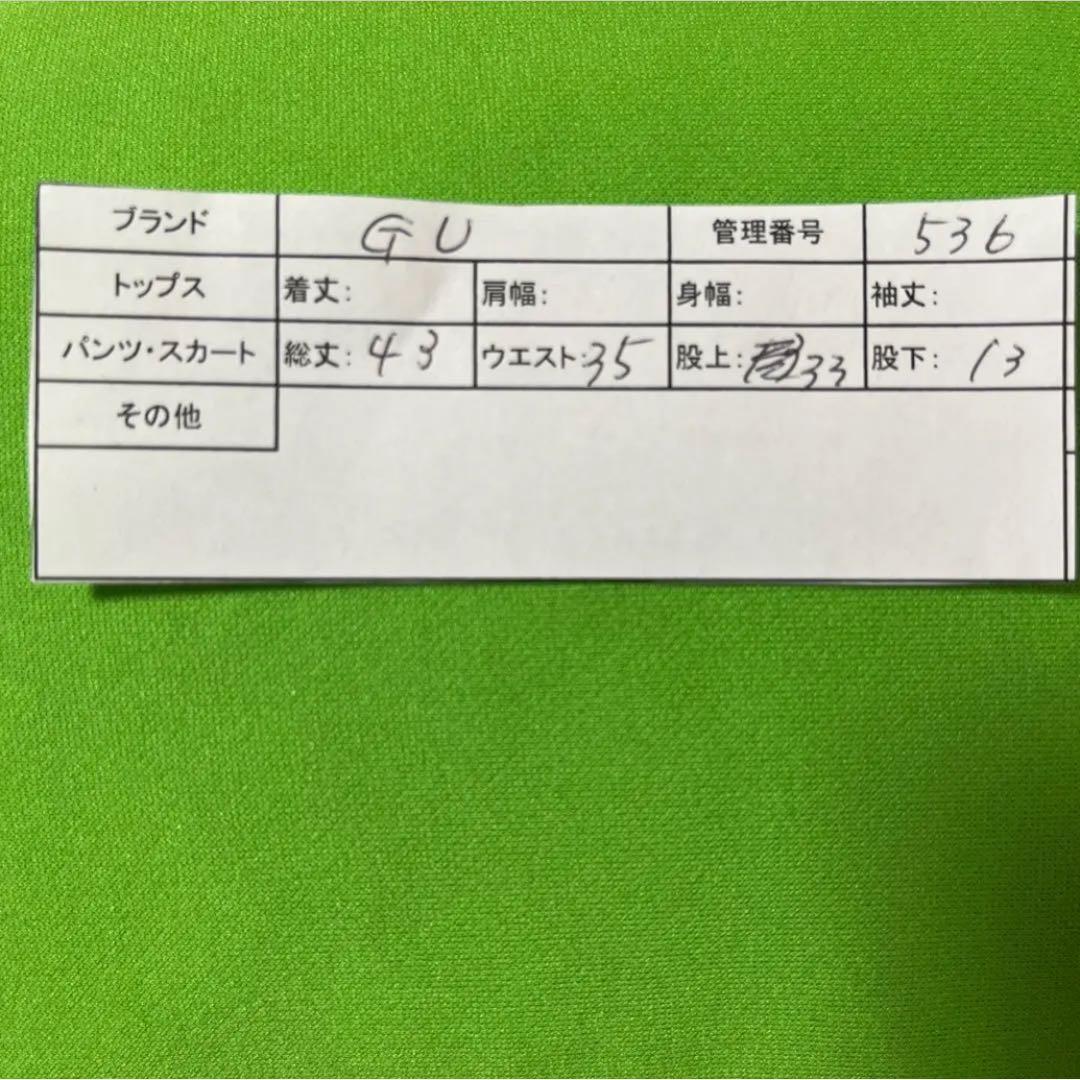 ブランド GU 管理番号 536
トップス 着丈: 肩幅: 身幅: 袖丈:
パンツ・スカート 総丈: 43 ウエスト:35 股上: 33 股下: 13
その他